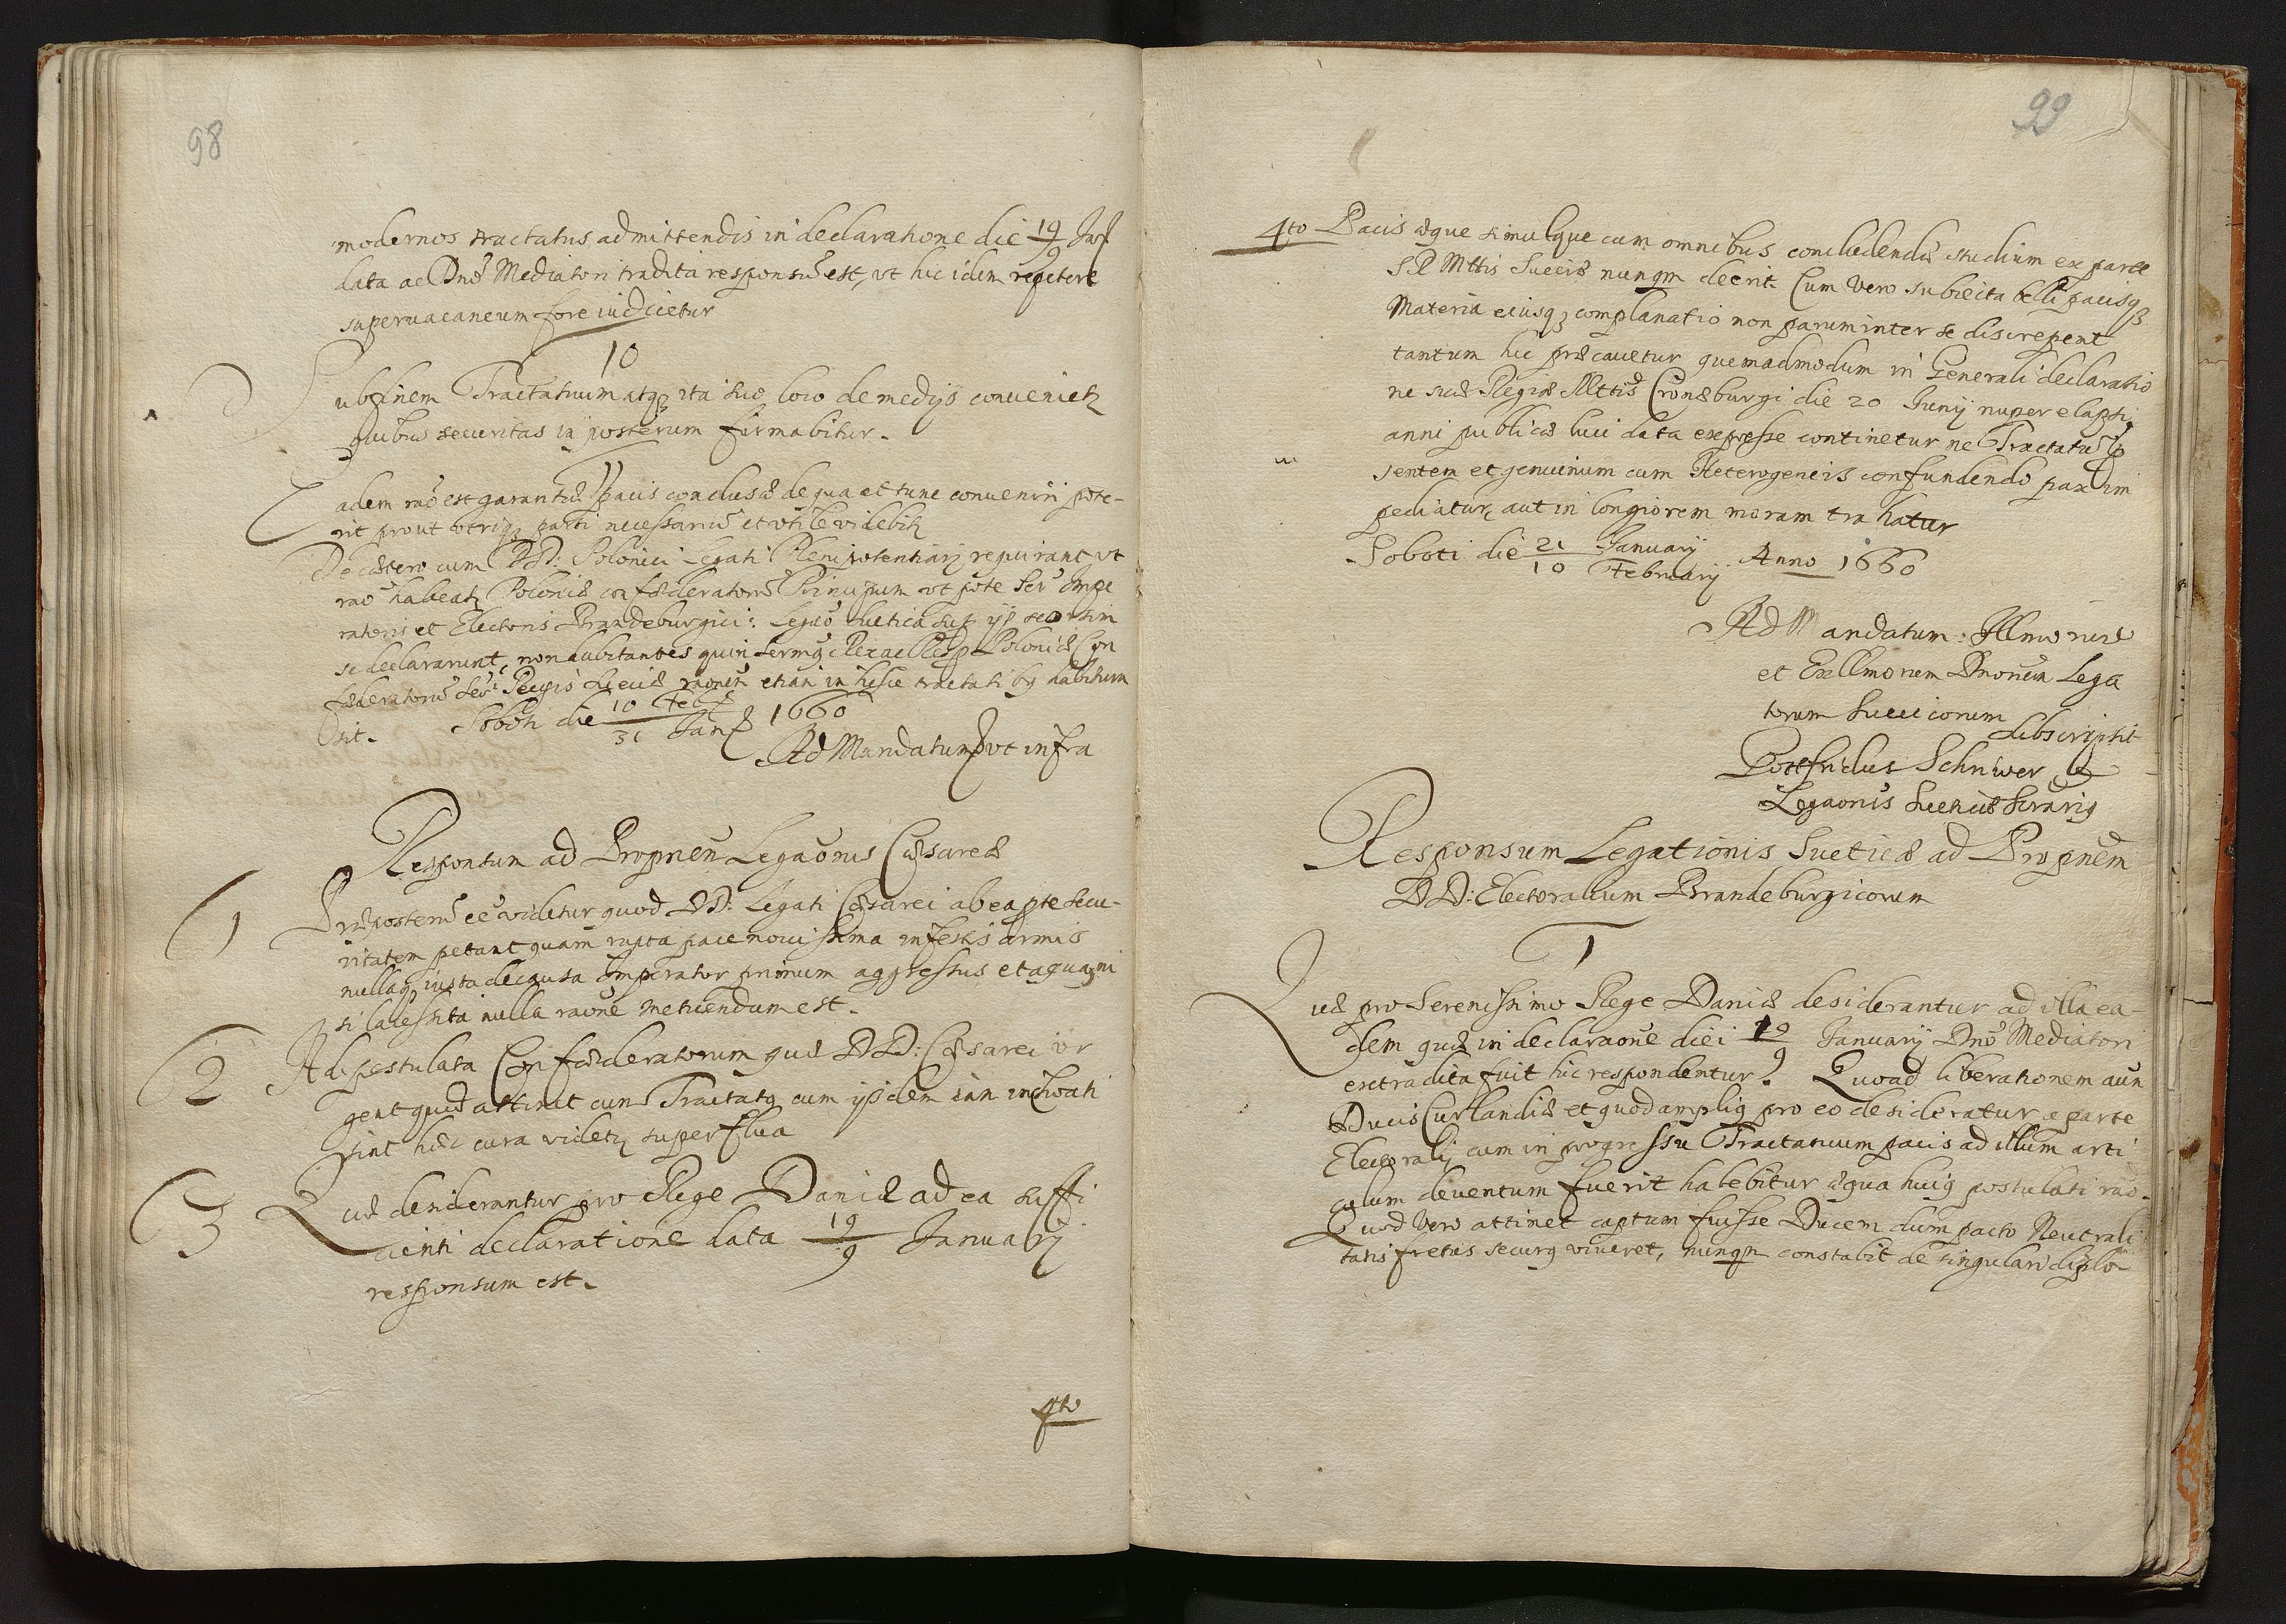 98
modernos tractatus admittendis in declaratione die 19/9 Jan
data ac Dnō Mediatori tradita responsū est, vt hic idem repetere
supervacaneum fore iudicietur
10
Sub finem Tractatuum atq₃ ita suo loco de medijs conveniet
quibus securitas in posterum firmabitur.
11
Eadem raō est garantiæ pacis conclusæ de qua et tunc conveniri pote-
rit prout vtriq₃ parti necessariū et vtile videbit
De cætero cum DD: Polonici Legati Plenipotentiarij requirant vt
raō habeat Poloniæ confœderatorū Principum vt pote Ser Impe
ratoris et Electoris Brandeburgici: Legaō Suetica sup ijs seorsim
se declararunt, non dubitantes quin Sermus Rex ac Resp Poloniæ Con
fœderatorū Sermi Regis Sueciæ raonem etiam in hisce tractatibus habitura
sit. Soboti die 10 Feb/31 Jan 1660
Ad Mandatum vt infra
Responsum ad Propnēm Legaōnis Cæsareæ
1 Præposterū eē videtur quod DD: Legati Cæsarei ab ea pte secu-
ritatem petant quam rupta pace novissima infestis armis
nullaq₃ iusta de causa Imperator primum aggressus et a qua ni
si lacessita nulla raōne metuendum est.
2 Ad postulata Confœderatorum quæ DD: Cæsarei vr
gent quod attinet cum Tractatus cum ijsdem iam inchoati
sint hæc cura videt superflua
3 Quæ desiderantur pro Rege Daniæ ad ea suffi
cienti declaratione data 19/9 January
responsum est.
4to
99
4to Pacis æque simulque cum omnibus concludendæ studium ex parte
S R Mttis Sueciæ nunqm deerit Cum vero subiecta belli pacisq₃
Materia eiusq₃ complanatio non parum inter se discrepent
tantum hic præcavetur quemadmodum in Generali declaratio
ne suæ Regiæ Mttis Croneburgi die 20 Juny nuper elapsi
anni publicæ luci data expresse continetur ne Tractatū
sentem et genuinum cum Heterogeneis confundendo pax im
pediatur aut in longiorem moram trahatur
Soboti die 21 January/10 February Anno 1660
Ad Mandatum Illmorum
et Exllmorum Dnorum Lega
torum Suecicorum
Subscripsit
Gottfridus Schriwer
Legaonis Sueticæ Scrarius
Responsum Legationis Sueticæ ad Propnēm
DD: Electoralium Brandeburgicorum
1
Quæ pro Serenissimo Rege Daniæ desiderantur ad illa ea-
dem quæ in declaraōne diei 19/9 January Dnō Mediatori
extradita fuit hic respondentur. Quoad liberationem aūn
Ducis Curlandiæ et quod amplius pro eo desideratur a parte
Electorali cum in progressu Tractatuum pacis ad illum arti
culum deventum fuerit habebitur æqua huius postulati raō.
Quod vero attinet captum fuisse Ducem dum pacto Neutrali
tatis fretus securus viveret, nunqm constabit de singulari diplo-